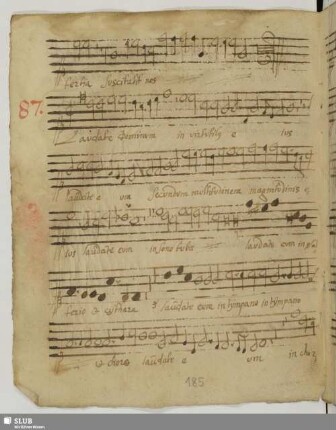 tertia suscitabit nos
87.
Laudate Dominum in virtutibus e ius
laudate e um Secundum multitudinem magnitudinis e
ius laudate eum in sono tubæ laudate eum in psal
terio et cythara laudate eum in tympano in tympano
et choro laudate e um in choro
185
SLUB
Wir führen Wissen.